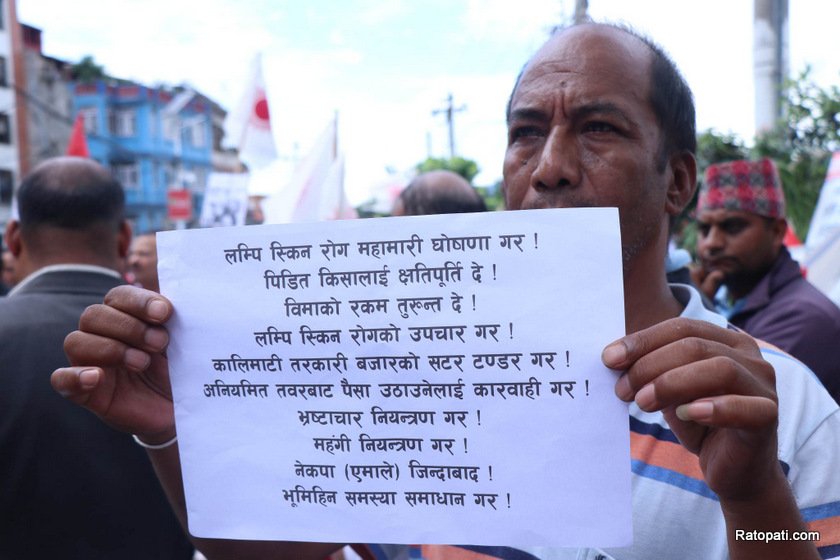 लम्पि स्किन रोग महामारी घोषणा गर !
पिडित किसालाई क्षतिपूर्ति दे !
विमाको रकम तुरून्त दे !
लम्पि स्किन रोगको उपचार गर !
कालिमाटी तरकारी बजारको सटर टण्डर गर !
अनियमित तवरबाट पैसा उठाउनेलाई कारवाही गर !
भ्रष्टाचार नियन्त्रण गर !
महंगी नियन्त्रण गर !
नेकपा (एमाले) जिन्दाबाद !
भूमिहिन समस्या समाधान गर !
Ratopati.com